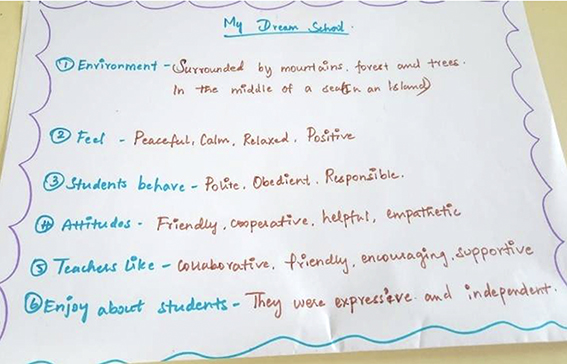 My Dream School.
① Environment - Surrounded by mountains, forest and trees.
In the middle of a sea(In an Island)
② Feel - Peaceful, Calm, Relaxed, Positive
③ Students behave - Polite, Obedient, Responsible.
④ Attitudes - Friendly, cooperative, helpful, empathetic
⑤ Teachers like - Collaborative, friendly, encouraging, supportive
⑥ Enjoy about students - They were expressive and independent.